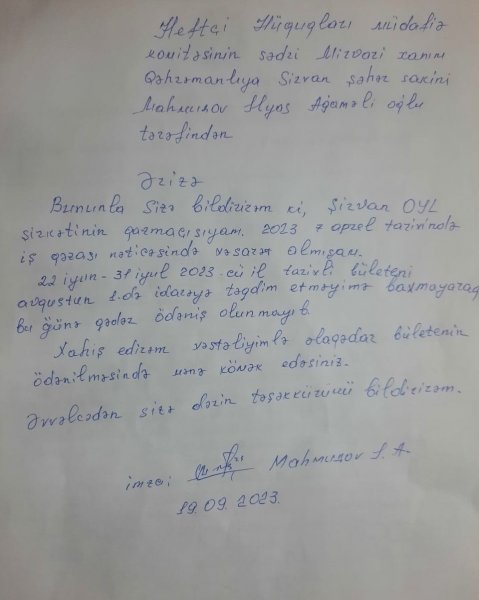 Neftçi Hüquqları müdafiə
komitəsinin sədri Mirvari xanım
Qəhrəmanlıya Şirvan şəhər sakini
Mahmudov İlyas Ağaməli oğlu
tərəfindən
Ərizə
Bununla Sizə bildirirəm ki, Şirvan OYL
şirkətinin qazmaçısıyam. 2023 7 aprel tarixində
iş qəzası nəticəsində xəsarət almışam.
22 iyun - 31 iyul 2023-cü il tarixli bületeni
avqustun 1-də idarəyə təqdim etməyimə baxmayaraq
bu günə qədər ödəniş olunmayıb.
Xahiş edirəm xəstəliyimlə əlaqədar bületenin
ödənilməsində mənə kömək edəsiniz.
Əvvəlcədən sizə dərin təşəkkürümü bildirirəm.
imza: Mahmudov İ. A.
19.09.2023.